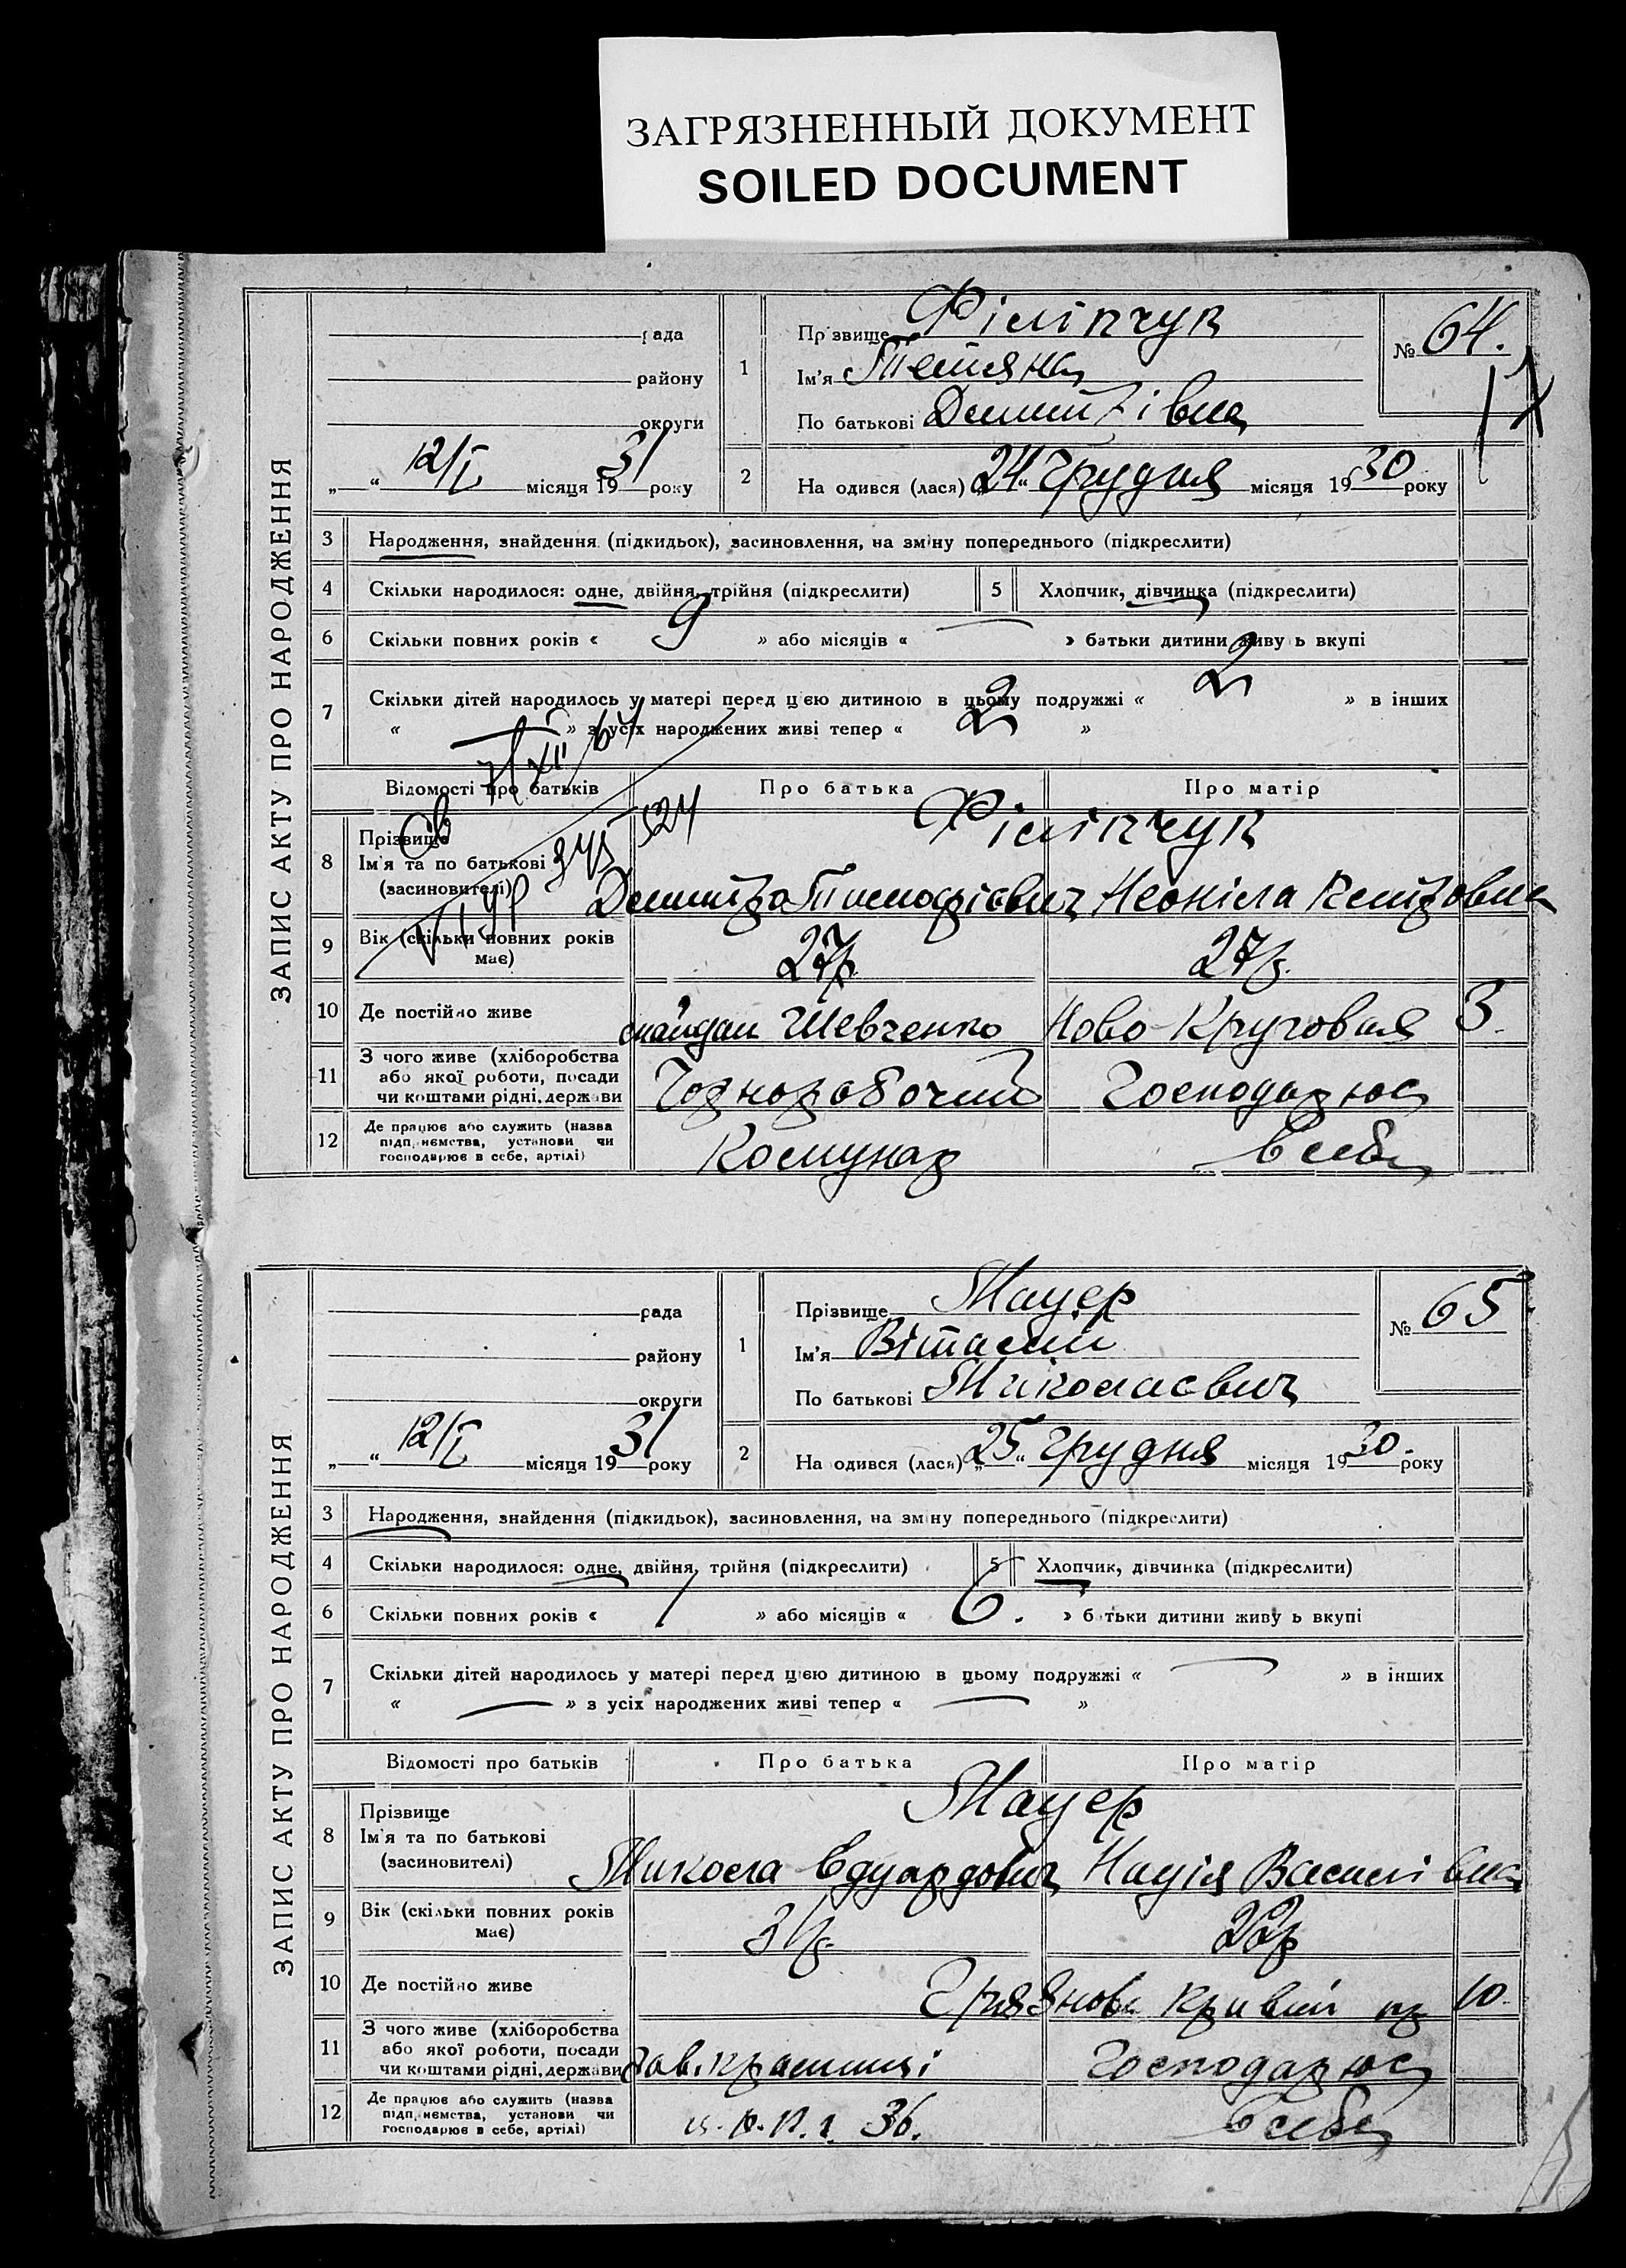 ЗАГРЯЗНЕННЫЙ ДОКУМЕНТ
SOILED DOCUMENT
ЗАПИС АКТУ ПРО НАРОДЖЕННЯ
рада
району
округи
„ “ 12/I місяця 1931 року
1
Прізвище Філіпчук
Ім'я Тетяна
По батькові Дмитрівна
№ 64.
2
На одився (лася) „24“ Грудня місяця 1930 року
3 Народження, знайдення (підкидьок), засиновлення, на зміну попереднього (підкреслити)
4 Скільки народилося: одне, двійня, трійня (підкреслити)
5 Хлопчик, дівчинка (підкреслити)
6 Скільки повних років « 9 » або місяців « — » батьки дитини живу ь вкупі
7 Скільки дітей народилось у матері перед цією дитиною в цьому подружжі « 2 » в інших
« — » з усіх народжених живі тепер « 2 »
Відомості про батьків
Про батька
Про матір
8 Прізвище
Ім'я та по батькові
(засновителі)
Філіпчук
Дмитро Тимофієвич Неоніла
9 Вік (скільки повних років має)
27р.
27р.
10 Де постійно живе
майдан Шевченко Ново-Круговая 3.
11 З чого живе (хліборобства
або якої роботи, посади
чи коштами рідні, держави
Чорнорабочий
Господарює
12 Де працює або служить (назва
підприємства, установи чи
господарює в себе, артілі)
Комунар
в себе
ЗАПИС АКТУ ПРО НАРОДЖЕННЯ
рада
району
округи
„ “ 12/I місяця 1931 року
1
Прізвище Мауер
Ім'я Віталій
По батькові Миколаєвич
№ 65
2
На одився (лася) „25“ Грудня місяця 1930. року
3 Народження, знайдення (підкидьок), засиновлення, на зміну попереднього (підкреслити)
4 Скільки народилося: одне, двійня, трійня (підкреслити)
5 Хлопчик, дівчинка (підкреслити)
6 Скільки повних років « 1 » або місяців « 6. » батьки дитини живу ь вкупі
7 Скільки дітей народилось у матері перед цією дитиною в цьому подружжі « — » в інших
« — » з усіх народжених живі тепер « — »
Відомості про батьків
Про батька
Про матір
8 Прізвище
Ім'я та по батькові
(засиновителі)
Мауер
Микола Едуардович Надія Василівна
9 Вік (скільки повних років має)
31р.
22р
10 Де постійно живе
10.
11 З чого живе (хліборобства
або якої роботи, посади
чи коштами рідні, держави
Зав. крамниці
Господарює
12 Де працює або служить (назва
підприємства, установи чи
господарює в себе, артілі)
36.
в себе